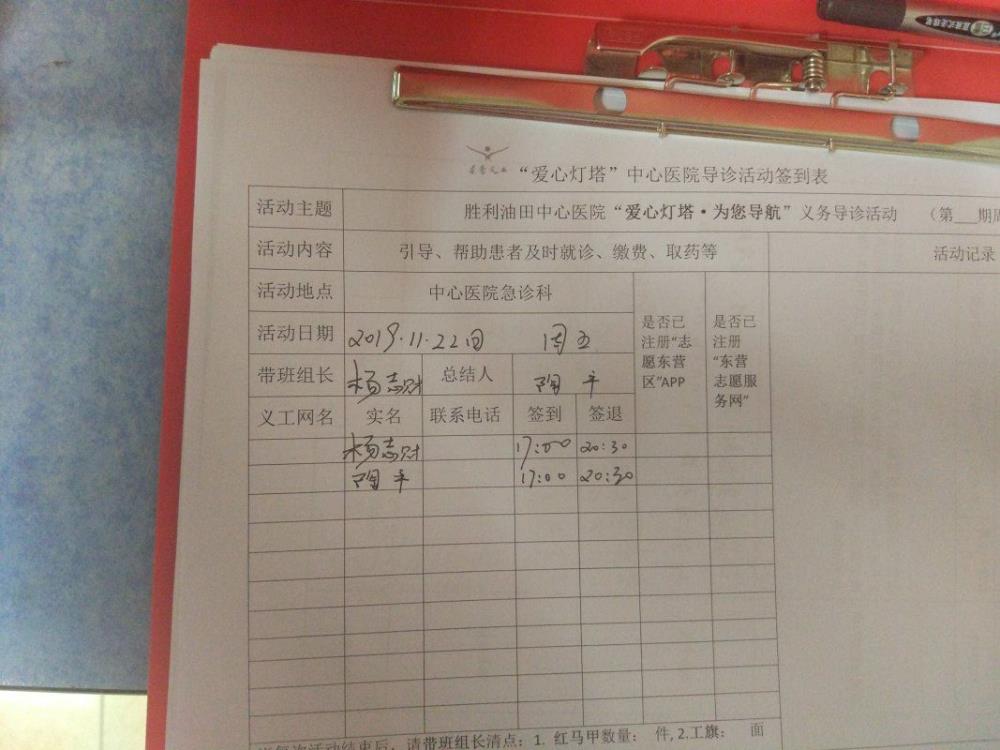 “爱心灯塔”中心医院导诊活动签到表
活动主题 胜利油田中心医院“爱心灯塔·为您导航”义务导诊活动 （第___期
活动内容 引导、帮助患者及时就诊、缴费、取药等 活动记录
活动地点 中心医院急诊科
活动日期 2019.11.22日 周五
带班组长 杨志财 总结人 陶平
是否已注册“志愿东营区”APP
是否已注册“东营志愿服务网”
义工网名 实名 联系电话 签到 签退
杨志财 17:00 20:30
陶平 17:00 20:30
活动结束后，请带班组长清点：1. 红马甲数量： 件, 2.工旗： 面